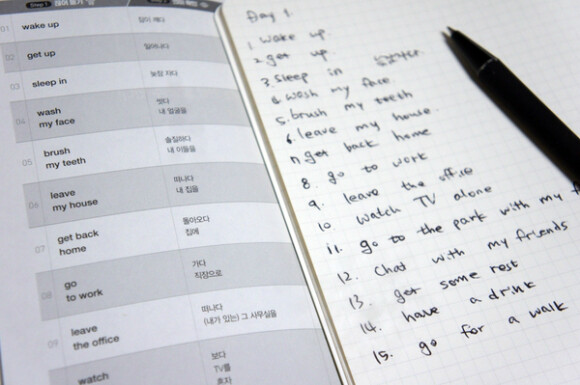 Step 1
01 wake up 잠이 깨다
02 get up 일어나다
03 sleep in 늦잠 자다
04 wash 씻다
my face 내 얼굴을
05 brush 솔질하다
my teeth 내 이들을
06 leave 떠나다
my house 내 집을
07 get back 돌아오다
home 집에
08 go 가다
to work 직장으로
09 leave 떠나다
the office (내가 있는) 그 사무실을
watch 보다
TV를
혼자
Day 1.
1. wake up.
2. get up.
3. sleep in
4. wash my face
5. brush my teeth
6. leave my house.
7. get back home
8. go to work
9. leave the office
10. watch TV alone
11. go to the park with my
12. chat with my friends
13. get some rest
14. have a drink
15. go for a walk